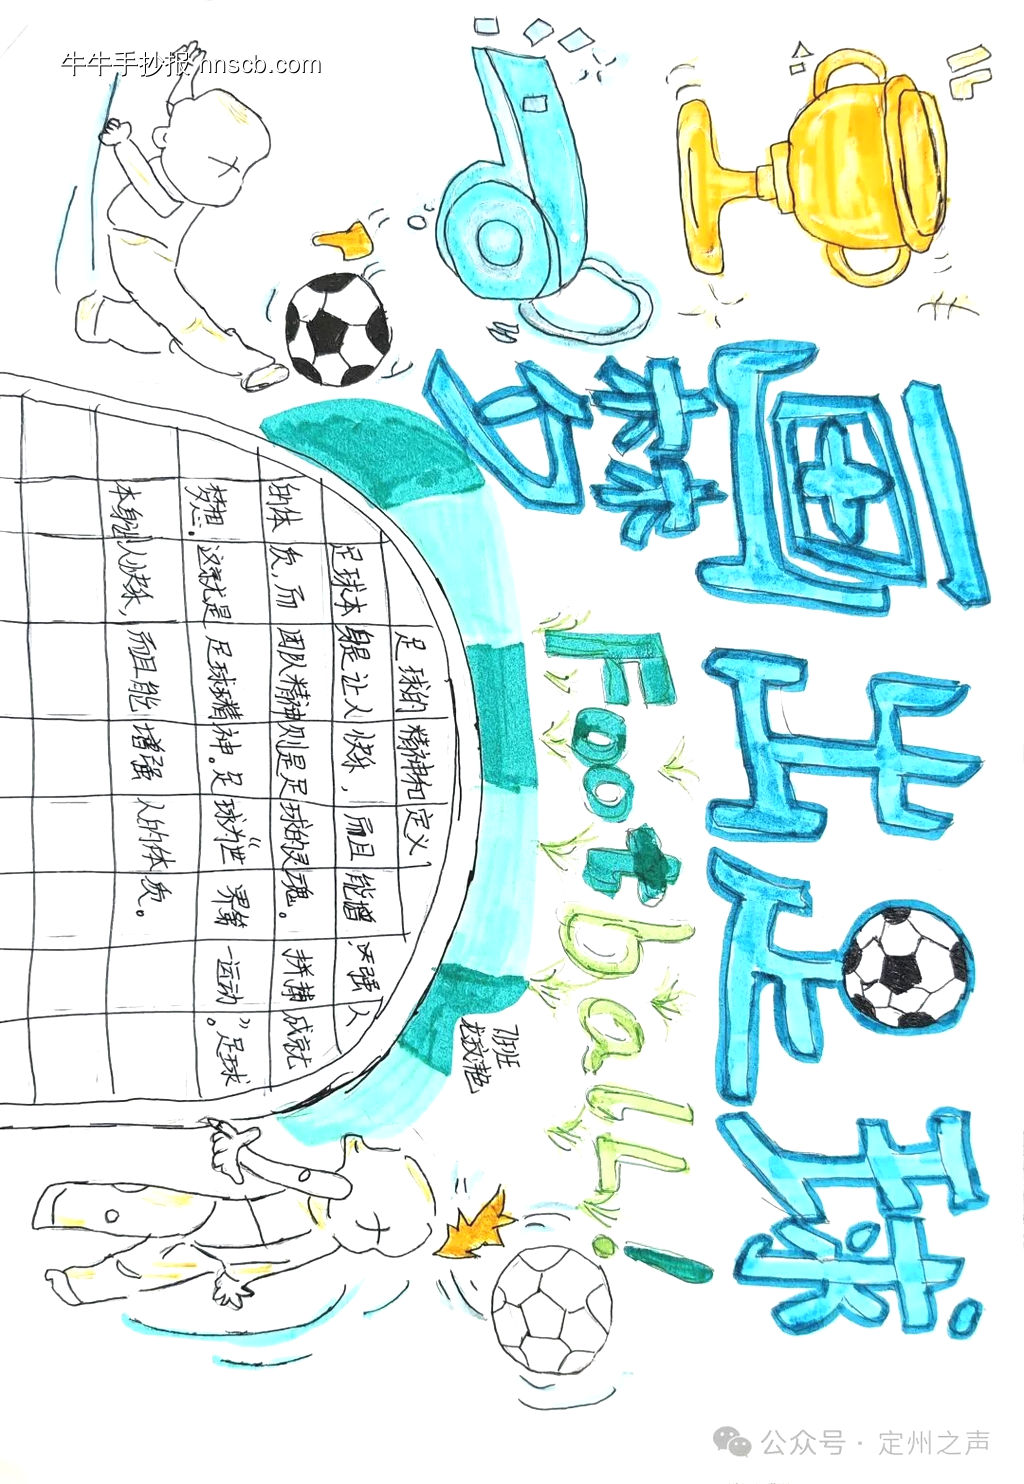 牛牛手抄报 nnscb.com
画出足球
梦
Football!
足球的精神和定义
足球本身是让人快乐，而且能增强人
的体质，而团队精神则是足球的灵魂。拼搏成就
梦想。这就是足球球精神。足球为“世界第一运动”。足球
本身让人快乐，而且能增强人的体质。
7班
公众号 · 定州之声